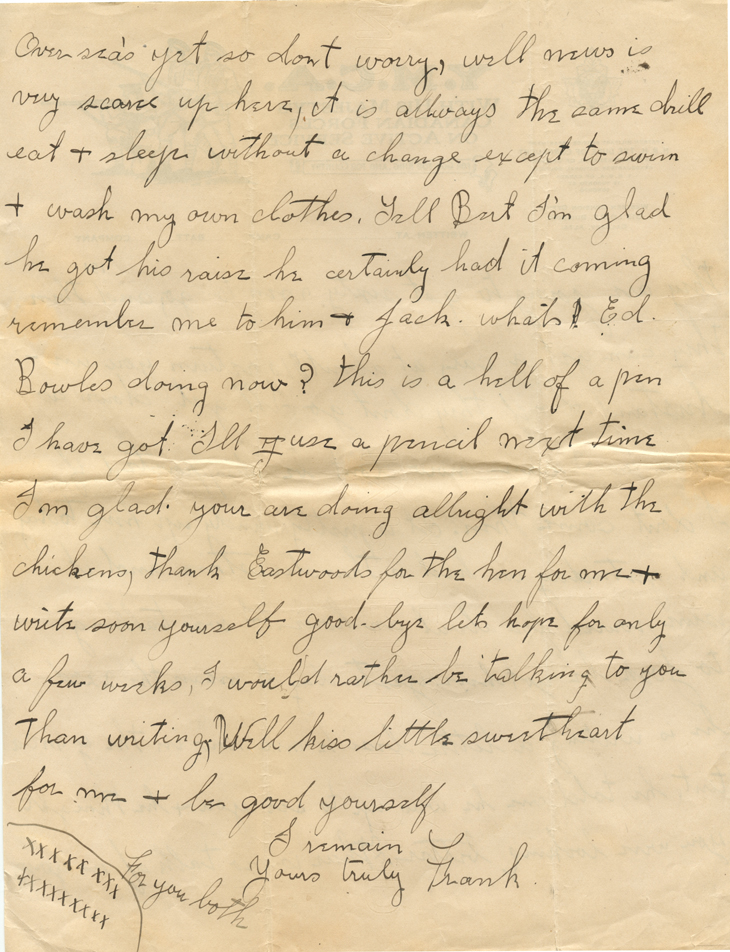 Over sea's yet so dont worry, well news is
very scarce up here, it is allways the same drill
eat + sleep without a change except to swim
+ wash my own clothes. Tell Bert I'm glad
he got his raise he certainly had it coming
remember me to him + Jack. whats Ed.
Bowles doing now? this is a hell of a pen
I have got. I'll use a pencil next time
I'm glad. your are doing allright with the
chickens, thank Eastwoods for the hen for me +
write soon yourself good-bye lets hope for only
a few weeks, I would rather be talking to you
than writing, Well kiss little sweetheart
for me + be good yourself
I remain
Yours truly Frank.
For you both
xxxxxxx
xxxxxxxx